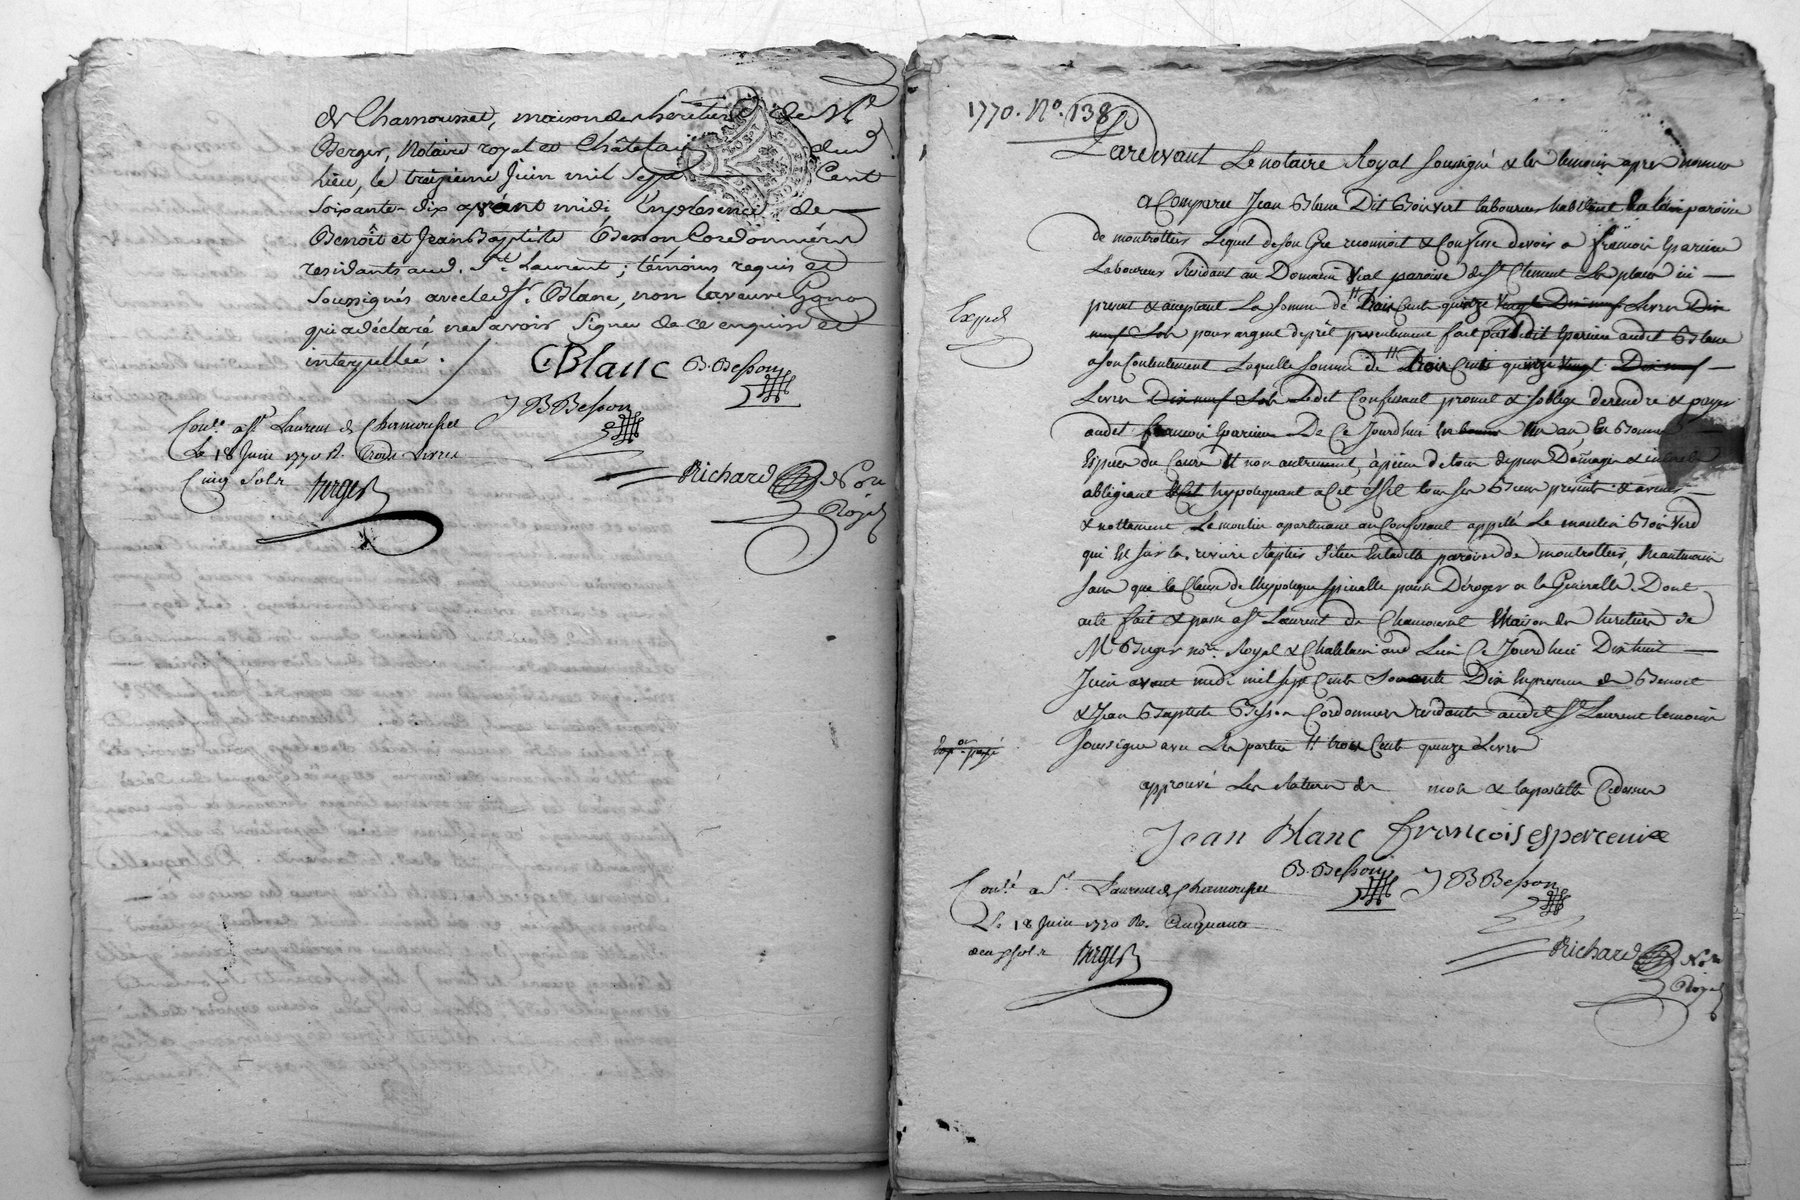 de Chamousset, maison des heritiers de Me
Berger, Notaire royal et Châtelain dud
lieu, le treizieme Juin mil sept Cent
soixante-dix avant midi En présence de
Benoît et Jean Baptiste Besson Cordonniers
residants aud. St. Laurent; témoins requis et
soussignés avec led. Sr. Blanc, non la veuve
qui a déclaré ne savoir signer de ce enquise et
interpellée.
CBlanc B. Besson
J B Besson
Con.le a St Laurent de Chamousset
Le 18 Juin 1770 R. Trois Livres
Cinq Sols Berger
Richard Nore
Royal
1770. No. 138
Pardevant Le notaire Royal soussigné & les temoins apres nommes
a Comparu Jean Blanc Dit Boisvert laboureur habitant en la paroisse
de montrottier Lequel de son Gre reconnoit & Confesse devoir a francois Esparcieu
Laboureur Résidant au Domaine Vial paroisse de St Clement Les places ici
present & acceptant La somme de # trois Cent quinze vingt Dix neuf Livres Dix
neuf Sols pour argent de prêt presentement fait par ledit Esparcieu audit Blanc
a son Contentement Laquelle somme de # trois Cents quinze vingt Dix neuf
Livres Dix neuf Sols Ledit Confessant promet & soblige de rendre & payer
audit francois Esparcieu De Ce Jourdhui en un an, En Bonnes
Espèces du Cours & non autrement, à peine de tous depens Domages & interets
obligeant & hypotequant a Cet effet tous ses Biens presents & avenir
& nottament Le moulin apartenant au Confessant appellé Le moulin Boisverd
qui Est sur la riviere Située En ladite paroisse de montrottier, Neantmoins
sans que la Clause de lhypoteque spécialle puisse Déroger a la Générale. Dont
acte fait & passé a St Laurent de Chamousset Maison des heritiers de
Me Berger nore. Royal & Chatelain aud Lieu Ce Jourdhui Dixhuit
Juin avant midi mil sept Cents Soixante Dix En presence de Benoit
& Jean Baptiste Besson Cordonniers résidants audit St Laurent temoins
soussignés avec Les parties # trois Cents quinze Livres
approuvé Les ratures de mots & lapostille Cidessus
Expédié
Jean Blanc francois esparcieux
B. Besson J B Besson
Con.lé a St. Laurent de Chamousset
Le 18 Juin 1770 R. Cinquante
deux sols Berger
Richard Nore
Royal